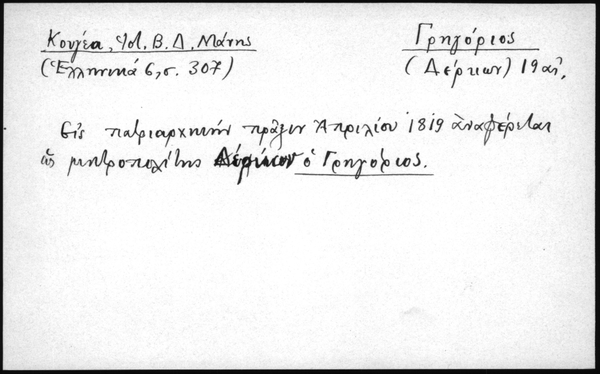 Κουγέα, Ἱστ. Β. Δ. Μάνης
(Ἑλληνικά 6, σ. 307)
Γρηγόριος
(Δέρκων) 19 αἰ.
Εἰς πατριαρχικήν πρᾶξιν Ἀπριλίου 1819 ἀναφέρεται
ὡς μητροπολίτης Δέρκων ὁ Γρηγόριος.